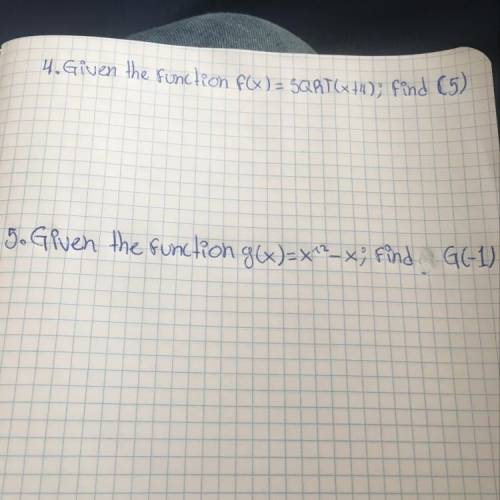 4. Given the function f(x) = SQRT(x+4); find (5)
5. Given the function g(x)=x^2-x; find G(-1)